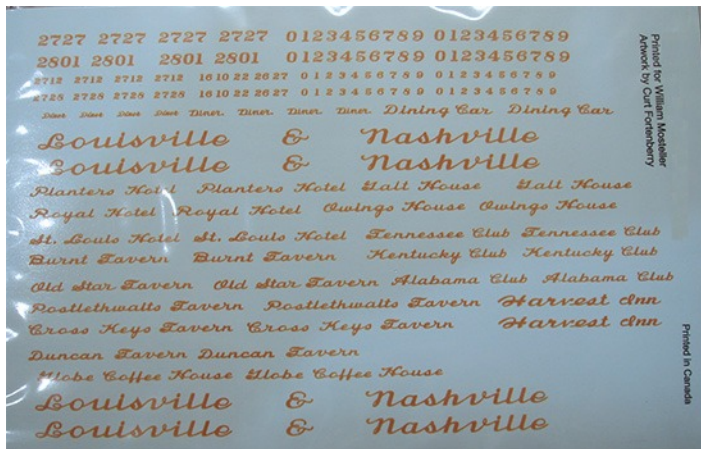 2727 2727 2727 2727 0123456789 0123456789
2801 2801 2801 2801 0123456789 0123456789
2712 2712 2712 2712 16 10 22 26 27 0123456789 0123456789
2728 2728 2728 2728 16 10 22 26 27 0123456789 0123456789
Diner Diner Diner Diner Diner. Diner. Diner. Dining Car Dining Car
Louisville & Nashville
Louisville & Nashville
Planters Hotel Planters Hotel Galt House Galt House
Royal Hotel Royal Hotel Owings House Owings House
St. Louis Hotel St. Louis Hotel Tennessee Club Tennessee Club
Burnt Tavern Burnt Tavern Kentucky Club Kentucky Club
Old Star Tavern Old Star Tavern Alabama Club Alabama Club
Postlethwaits Tavern Postlethwaits Tavern Harvest Inn
Cross Keys Tavern Cross Keys Tavern Harvest Inn
Duncan Tavern Duncan Tavern
Globe Coffee House Globe Coffee House
Louisville & Nashville
Louisville & Nashville
Printed for William Mosteller
Artwork by Curt Fortenberry
Printed in Canada